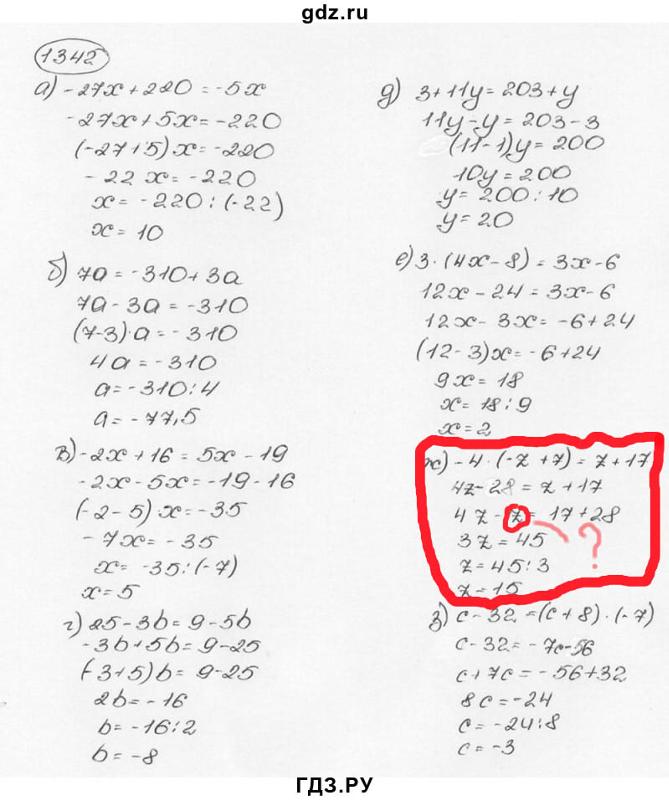 gdz.ru
1342
а) -27x + 220 = -5x
-27x + 5x = -220
(-27+5)x = -220
-22x = -220
x = -220 : (-22)
x = 10
б) 7a = -310 + 3a
7a - 3a = -310
(7-3)·a = -310
4a = -310
a = -310 : 4
a = -77,5
в) -2x + 16 = 5x - 19
-2x - 5x = -19 - 16
(-2-5)x = -35
-7x = -35
x = -35 : (-7)
x = 5
г) 25 - 3b = 9 - 5b
-3b + 5b = 9 - 25
(-3+5)b = 9 - 25
2b = -16
b = -16 : 2
b = -8
д) 3 + 11y = 203 + y
11y - y = 203 - 3
(11-1)y = 200
10y = 200
y = 200 : 10
y = 20
е) 3·(4x - 8) = 3x - 6
12x - 24 = 3x - 6
12x - 3x = -6 + 24
(12-3)x = -6 + 24
9x = 18
x = 18 : 9
x = 2
ж) -4·(-z + 7) = z + 17
4z - 28 = z + 17
4z - z = 17 + 28
?
3z = 45
z = 45 : 3
z = 15
з) c - 32 = (c + 8)·(-7)
c - 32 = -7c - 56
c + 7c = -56 + 32
8c = -24
c = -24 : 8
c = -3
ГДЗ.РУ